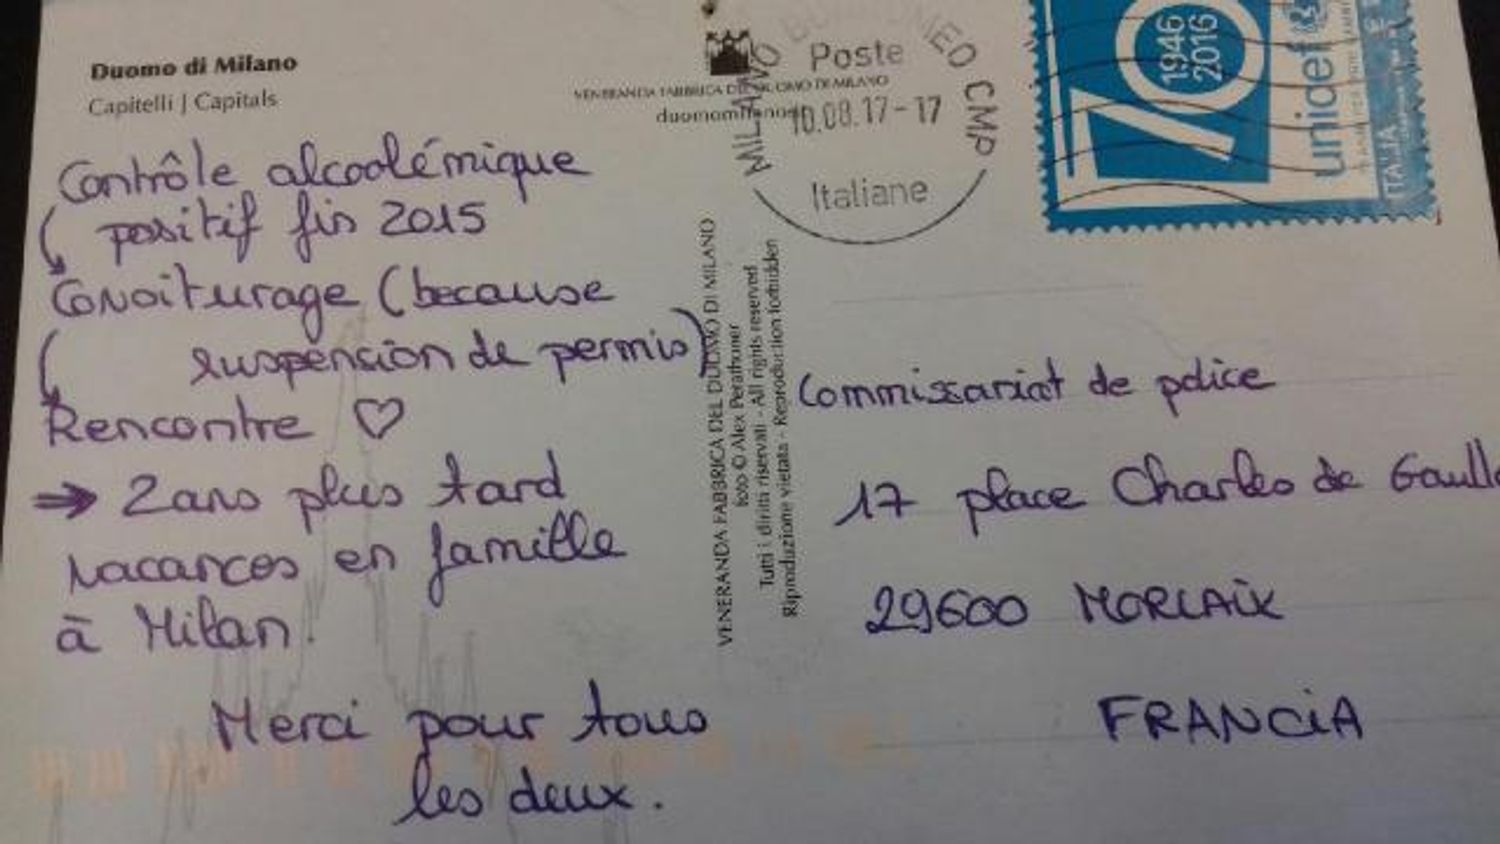 Duomo di Milano
Capitelli | Capitals
Contrôle alcoolémique
positif fin 2015
Covoiturage (because
suspension de permis)
Rencontre ♡
⇒ 2 ans plus tard
vacances en famille
à Milan.
Merci pour tous
les deux.
VENERANDA FABBRICA DEL DUOMO DI MILANO
duomomilano
MILANO BORROMEO CMP
Poste
10.08.17-17
Italiane
70
1946
2016
unicef
ITALIA
VENERANDA FABBRICA DEL DUOMO DI MILANO
foto © Alex Perathoner
Tutti i diritti riservati - All rights reserved
Riproduzione vietata - Reproduction forbidden
Commissariat de police
17 place Charles de Gaulle
29600 MORLAIX
FRANCIA